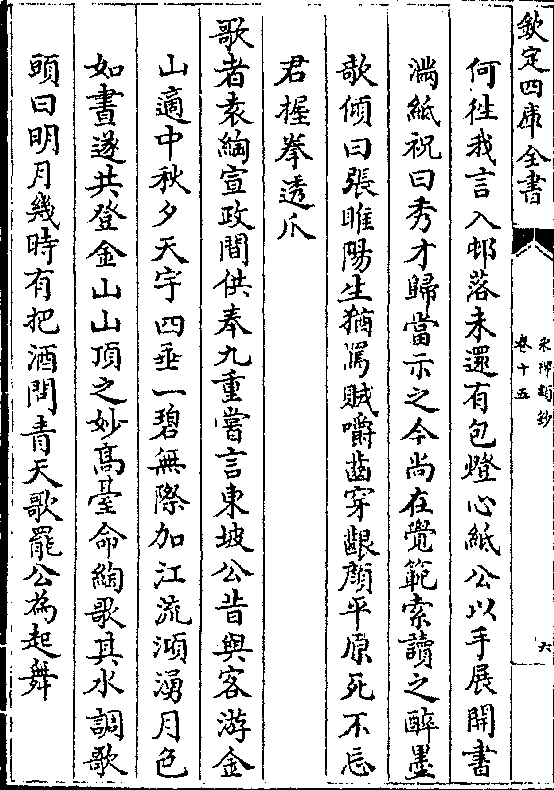 欽定四庫全書
宋稗類鈔
卷十五
六
何徃我言入邨落未還有包燈心紙公以手展開書
滿紙祝曰秀才歸當示之今尚在覺範索讀之醉墨
欹傾曰張睢陽生猶罵賊嚼齒穿齦顔平原死不忘
君握拳透爪
歌者袁綯宣政間供奉九重嘗言東坡公昔與客游金
山適中秋夕天宇四垂一碧無際加江流澒湧月色
如晝遂共登金山山頂之妙髙臺命綯歌其水調歌
頭曰明月幾時有把酒問青天歌罷公為起舞